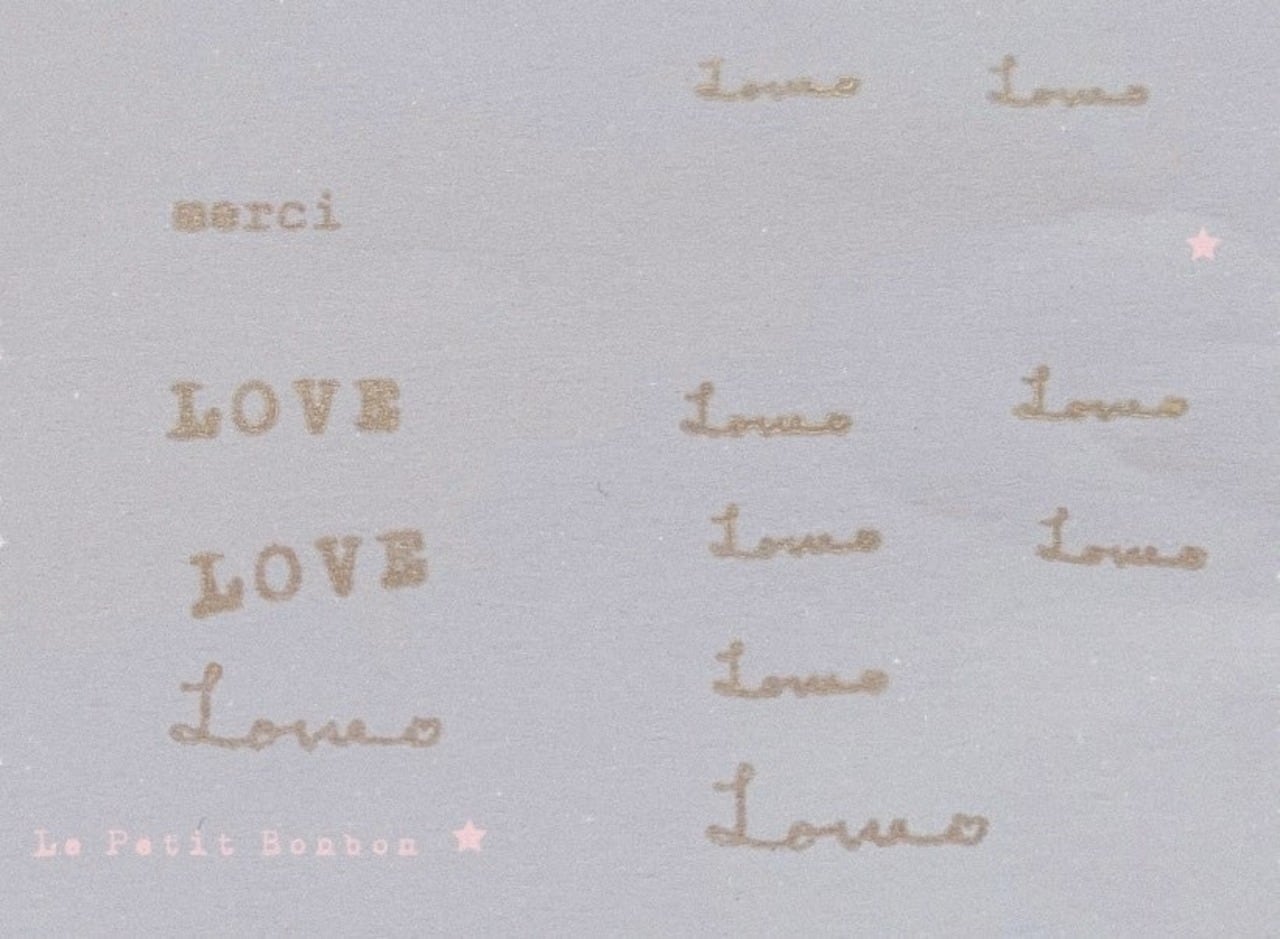 Love Love
merci
LOVE
Love Love
LOVE
Love Love
Love
Love
Love
Le Petit Bonbon